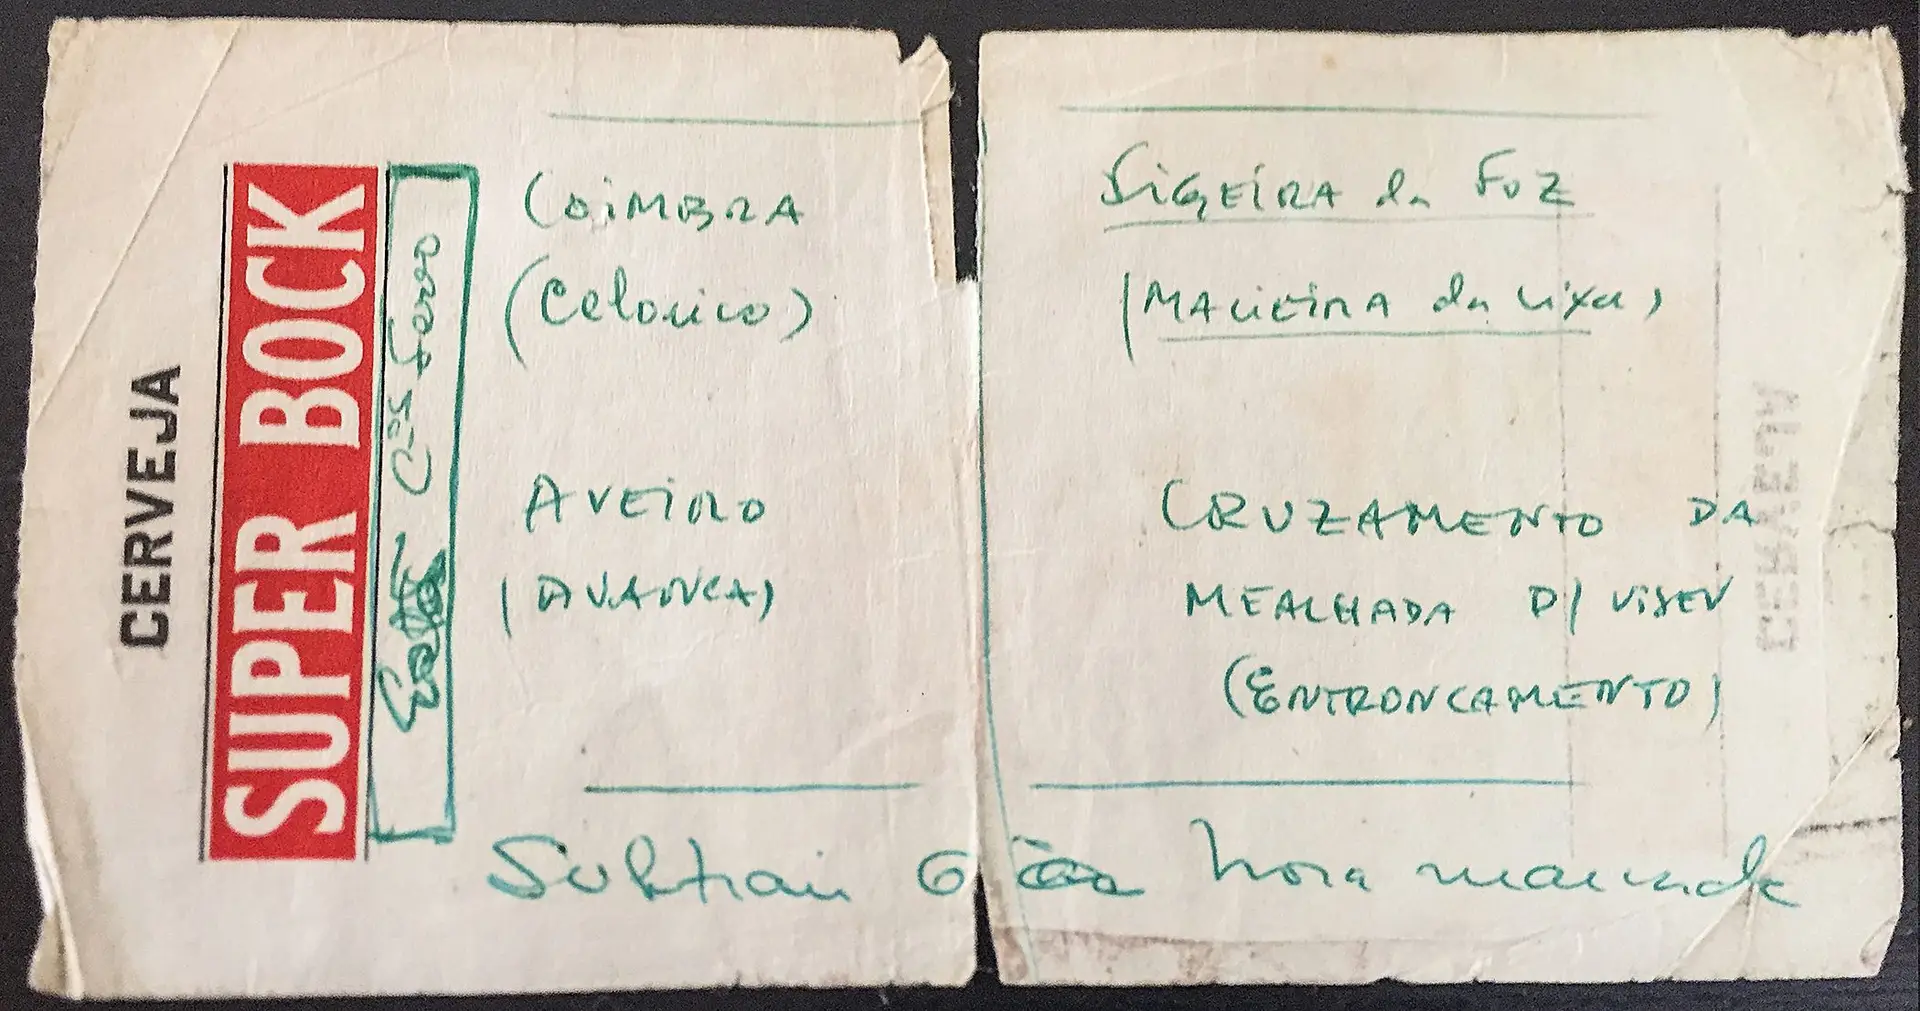 CERVEJA
SUPER BOCK
C=s Ferro
COIMBRA
(Celorico)
AVEIRO
(AVANCA)
FIGEIRA da FOZ
(MACIEIRA da Lixa)
CRUZAMENTO DA
MEALHADA P/ VISEU
(ENTRONCAMENTO)
Subtrair 6 hora marcada
CERVEJA